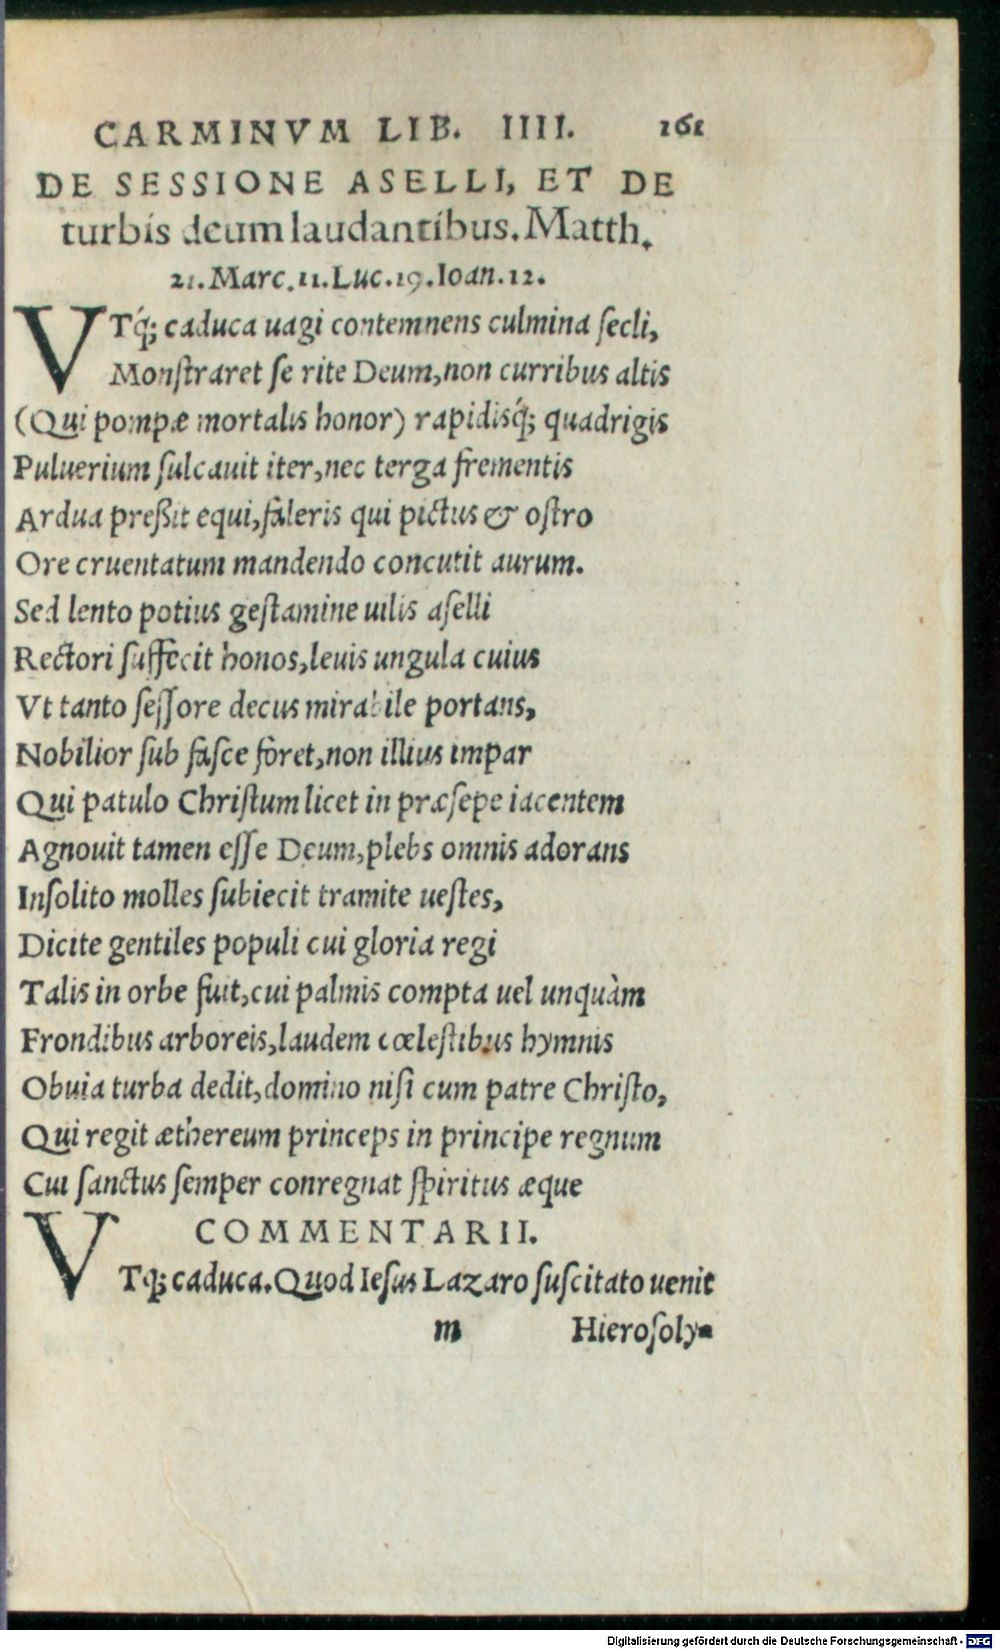 CARMINVM LIB. IIII. 161
DE SESSIONE ASELLI, ET DE
turbis deum laudantibus. Matth.
21. Marc. 11. Luc. 19. Ioan. 12.
VTq́; caduca uagi contemnens culmina ſecli,
Monſtraret ſe rite Deum, non curribus altis
(Qui pompæ mortalis honor) rapidisq́; quadrigis
Puluerium ſulcauit iter, nec terga frementis
Ardua preßit equi, faleris qui pictus & oſtro
Ore cruentatum mandendo concutit aurum.
Sed lento potius geſtamine uilis aſelli
Rectori ſuffecit honos, leuis ungula cuius
Vt tanto ſeſſore decus mirabile portans,
Nobilior ſub faſce foret, non illius impar
Qui patulo Chriſtum licet in præſepe iacentem
Agnouit tamen eſſe Deum, plebs omnis adorans
Inſolito molles ſubiecit tramite ueſtes,
Dicite gentiles populi cui gloria regi
Talis in orbe fuit, cui palmis compta uel unquàm
Frondibus arboreis, laudem cœleſtibus hymnis
Obuia turba dedit, domino niſi cum patre Chriſto,
Qui regit æthereum princeps in principe regnum
Cui ſanctus ſemper conregnat ſpiritus æque
COMMENTARII.
VTq; caduca. Quod Ieſus Lazaro ſuſcitato uenit
m Hieroſoly-
Digitalisierung gefördert durch die Deutsche Forschungsgemeinschaft - DFG